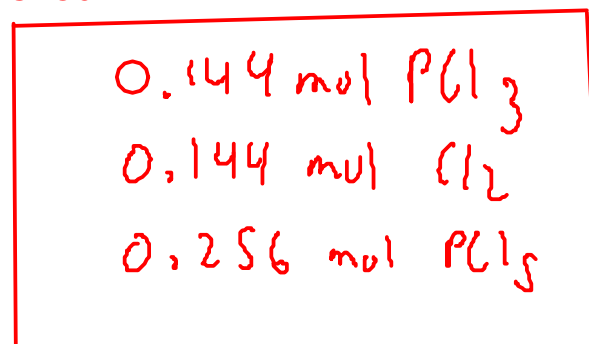 0.144 mol PCl3
0.144 mol Cl2
0.256 mol PCl5